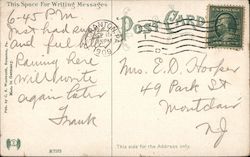 This Space For Writing Messages
6-45 P.M.
Just had eats
and feel better
Raining here
Will write
again later
Frank
Post Card
1909
Mrs. E. D. Hooper
49 Park St
Montclair
NJ
This side for the Address only.